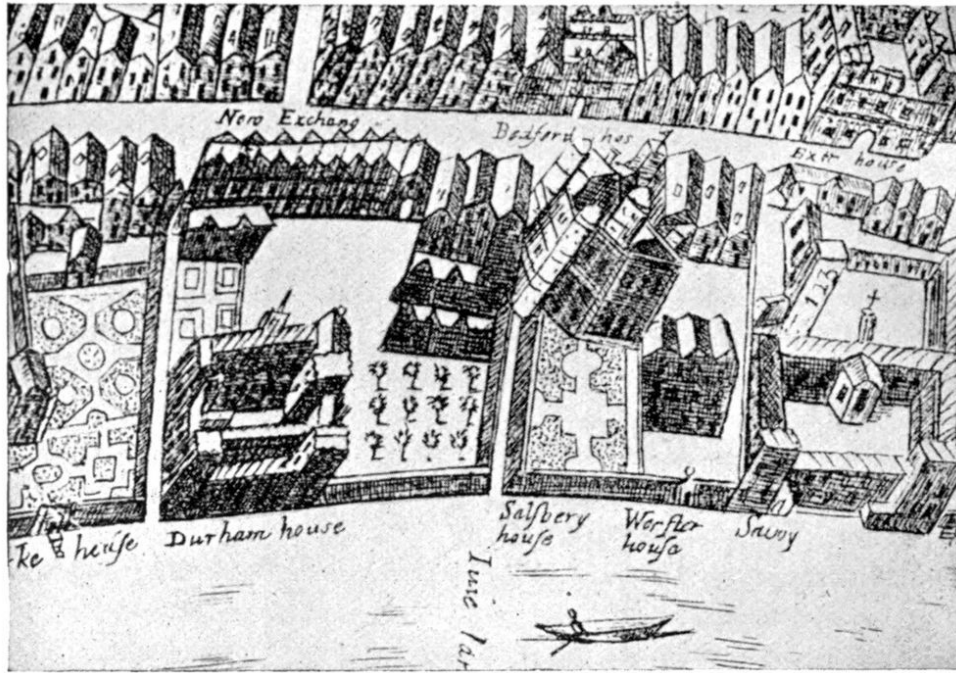 New Exchang
Bedford hos
Extr house
123
ke house
Durham house
Salsbery
house
Worster
house
Savoy
Ivie lan